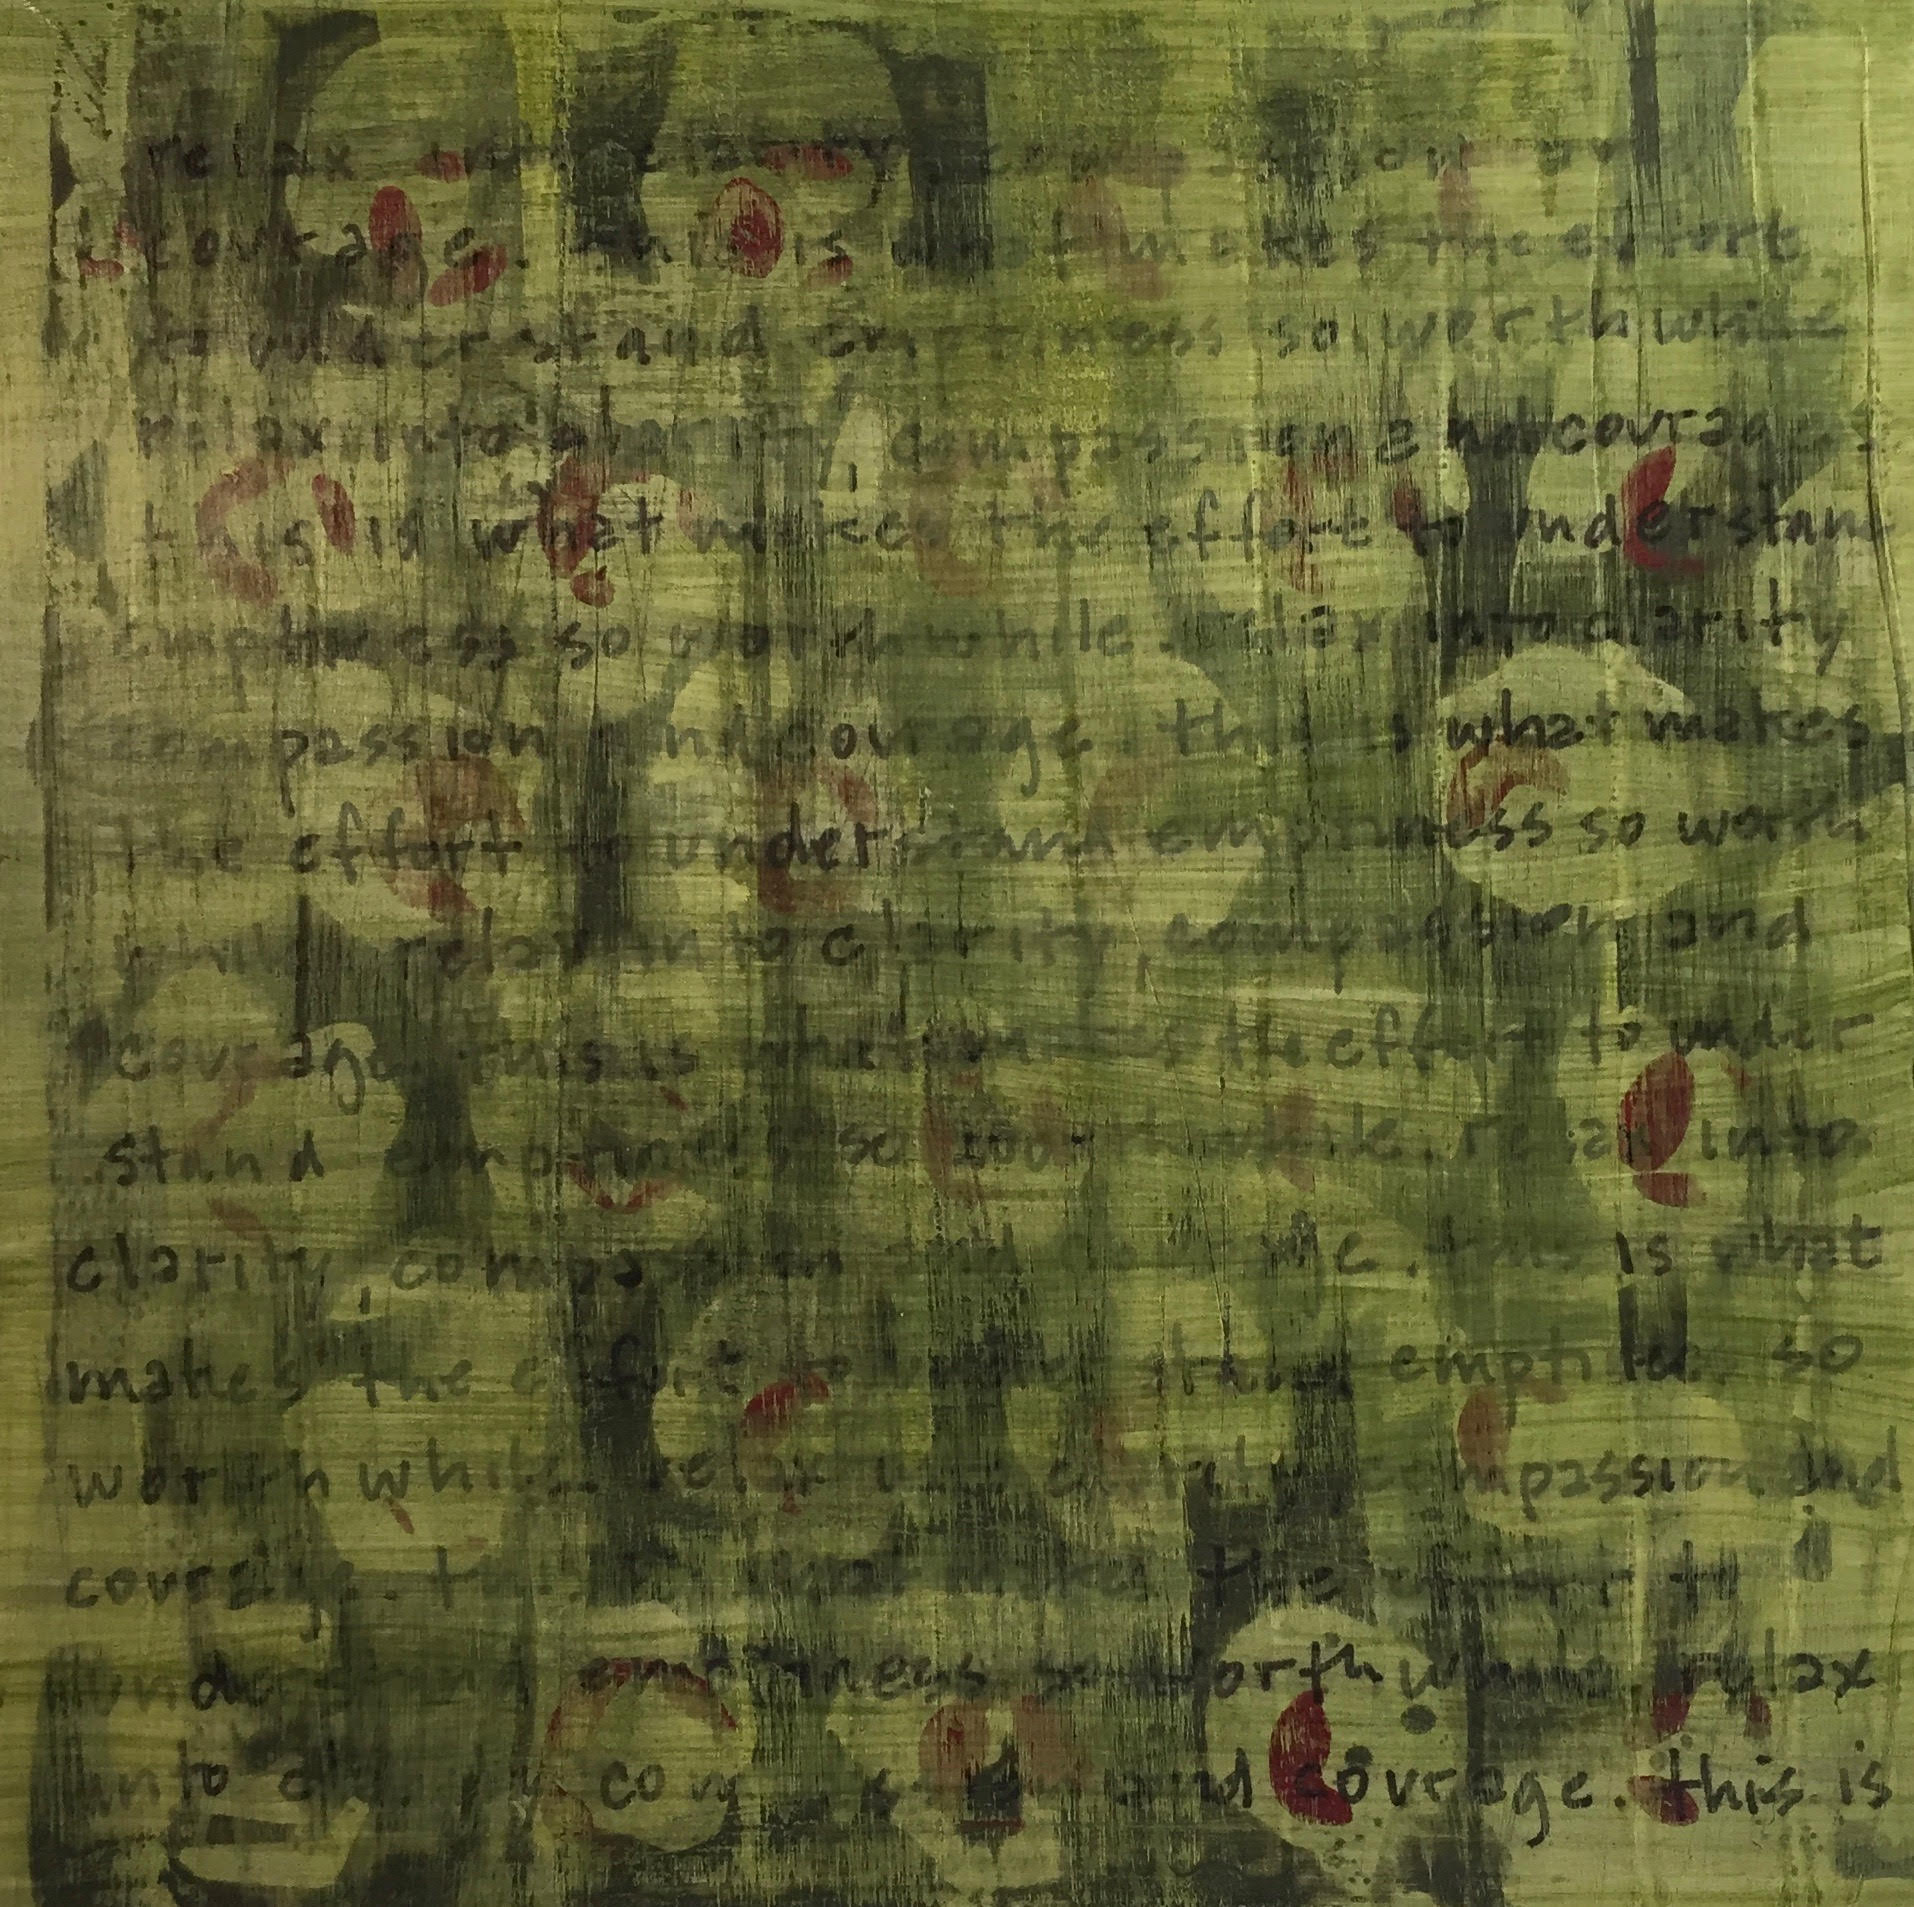 relax into clarity, compassion
courage. this is what makes the effort
to understand emptiness so worth while
relax into clarity, compassion and courage.
this is what makes the effort to understand
emptiness so worth while. relax into clarity
compassion and courage. this is what makes
the effort to understand emptiness so worth
while relax into clarity, compassion and
courage. this is what makes the effort to under
stand emptiness so worth while. relax into
clarity, compassion and courage. this is what
makes the effort to understand emptiness so
worth while. relax into clarity, compassion and
courage. this is what makes the effort to
understand emptiness so worth while. relax
into clarity compassion and courage. this is